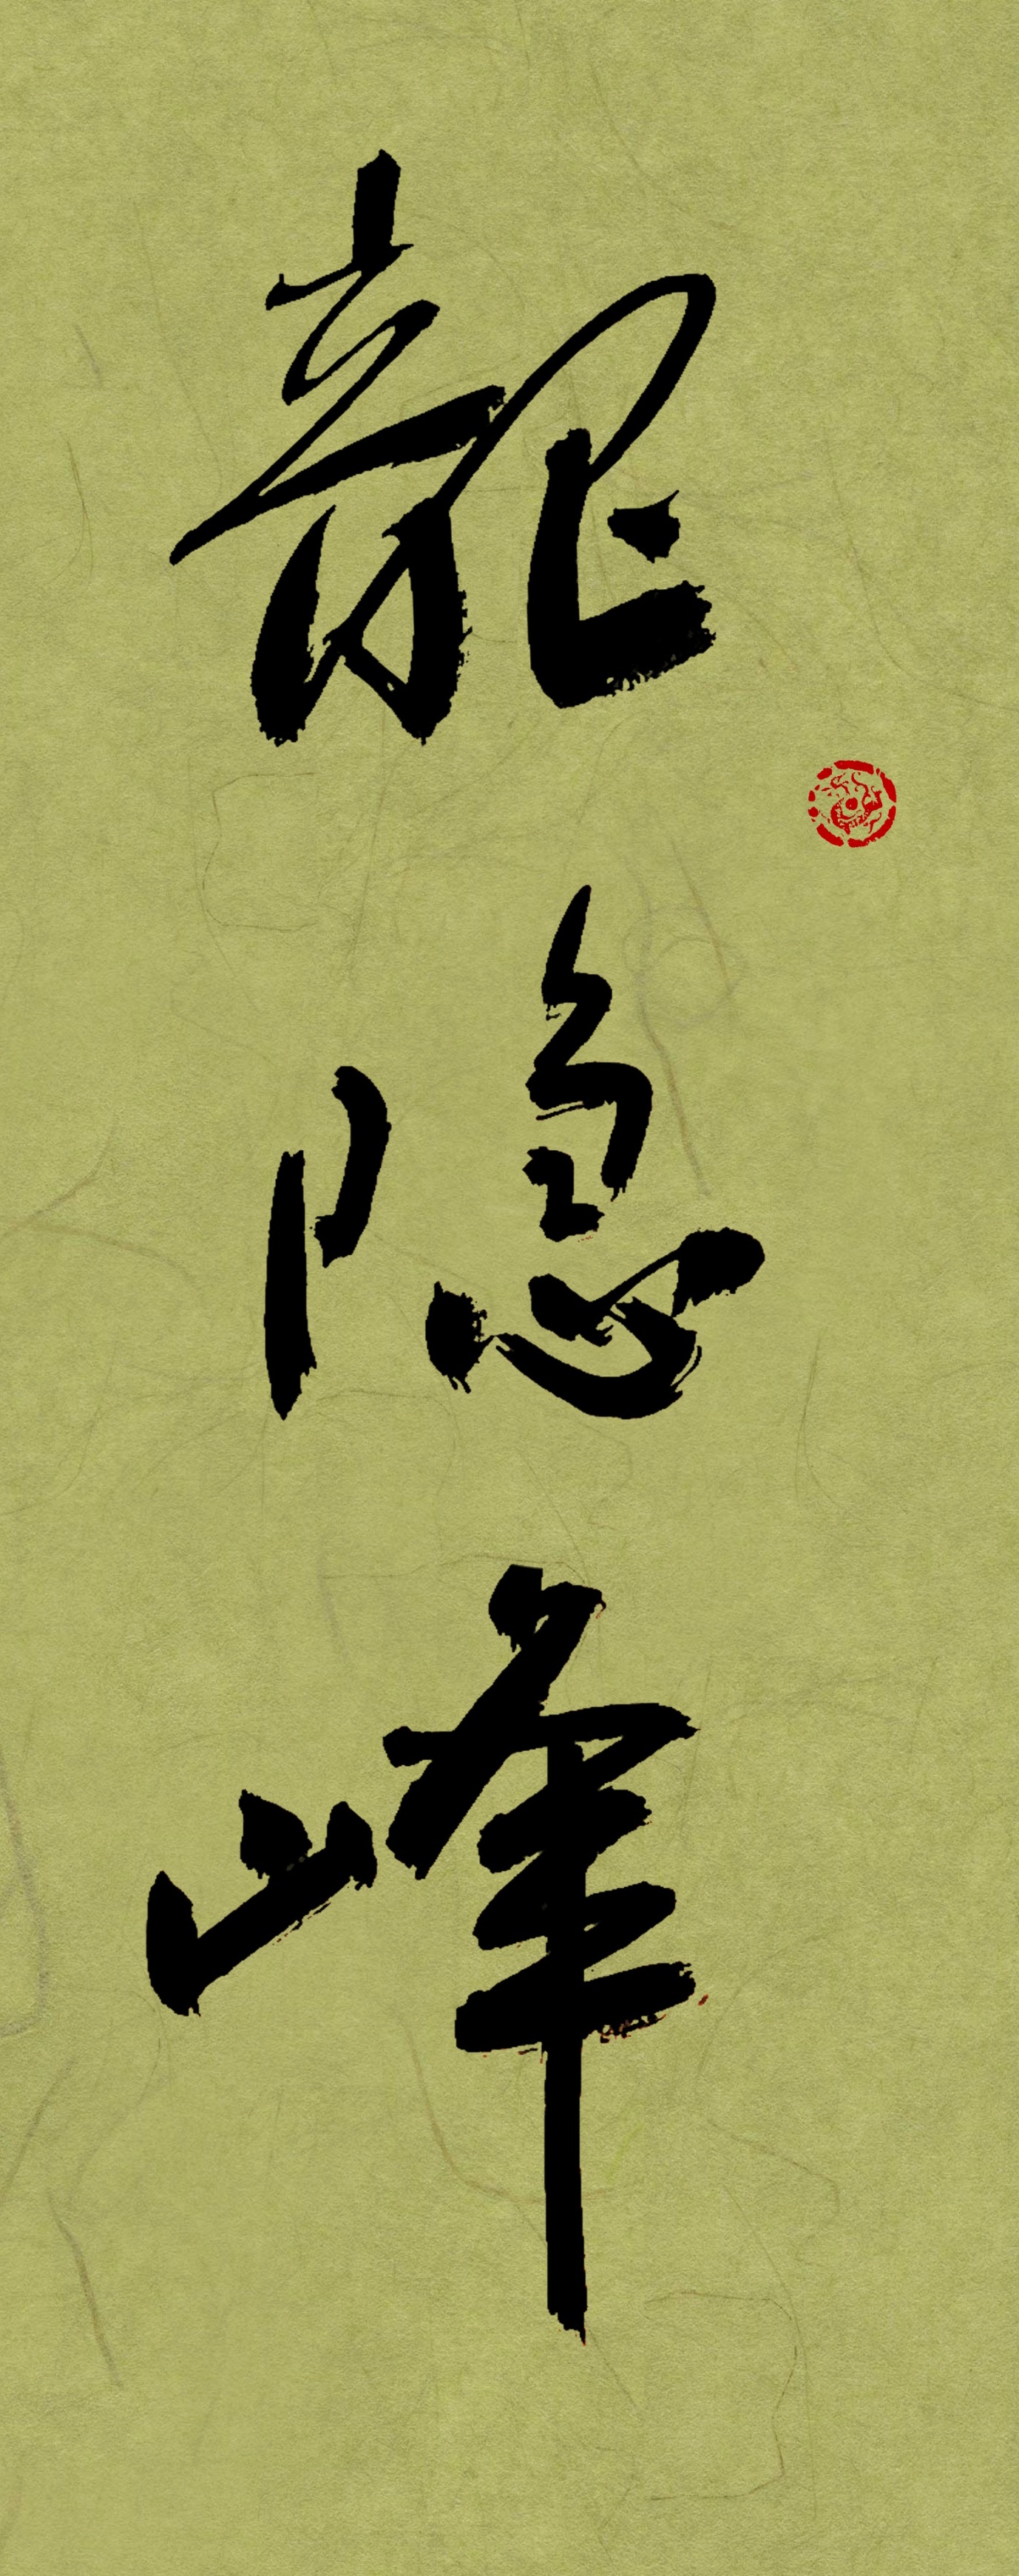 龍隐峰